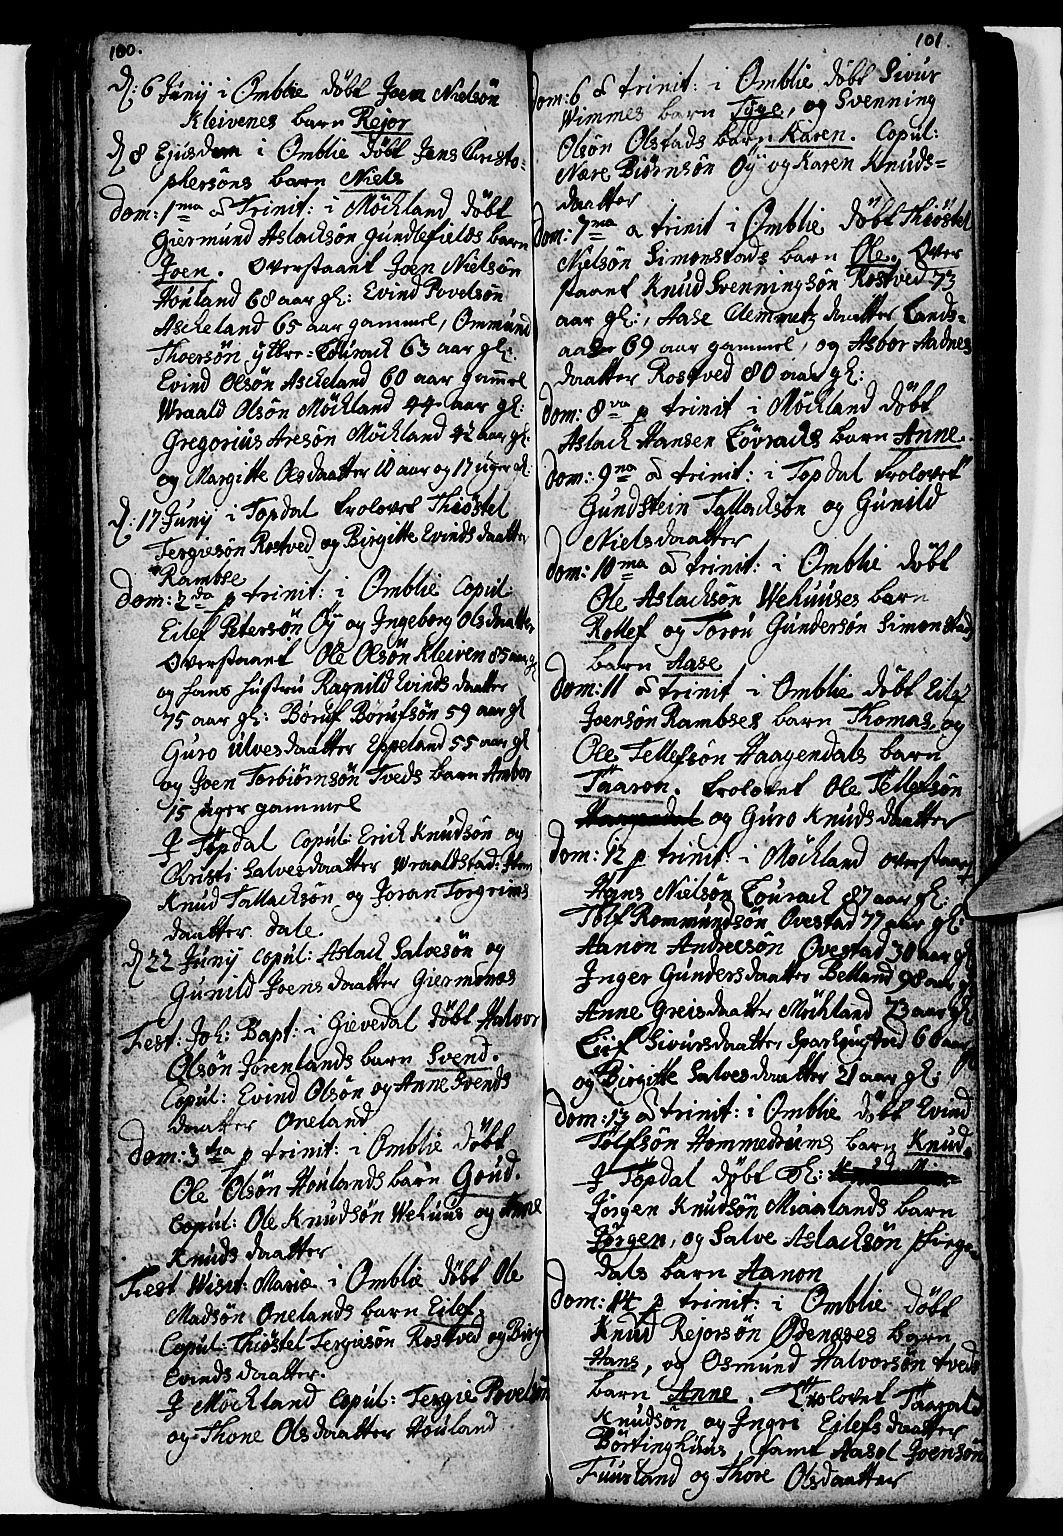 100.
d: 6 Junij i Omblie døbt Joen Nielsøn
Kleivenes barn Rejor
d 8 Ejusdem i Omblie døbt Jens Christo-
phersøns barn Niels
Dom: 1ma a Trinit: i Møckland døbt
Giermund Aslacksøn Gundlefields barn
Joen. Overstaaet Joen Nielsøn
Houland 68 aar gl: Evind Povelsøn
Askeland 65 aar gammel, Ommund
Thoersøn ytbre=Løurack 63 aar gl:
Evind Olsøn Askeland 60 aar gammel
Wraald Olsøn Møckland 44 aar gl:
Gregorius Aresøn Møckland 42 aar gl:
og Margitte Olsdaatter 10 aar og 17 uger gl:
d: 17 Junij i Topdal troloved Thiøstel
Tergiesøn Rostved og Birgitte Evindsdaatter
Rambse
Dom: 2da p trinit: i Omblie Copul:
Eilef Petersøn Øy og Ingeborg Olsdaatter
Overstaaet Ole Olsøn Kleiven 85 aar gl
og hans hustru Ragnild Evindsdaatter
75 aar gl: Børuf Børufsøn 59 aar gl
Guro Ulvesdaatter Eppeland 55 aar gl
og Joen Torbiørnsøn Tveds barn Ambor
15 uger gammel
J Topdal Copul: Erick Knudsøn og
Christi Salvesdaatter Wraaldstad: Item
Knud Tallacksøn og Joran Torgrims
daatter Dale.
d 22 Junij Copul: Aslack Salvesøn og
Gunild Joensdaatter Giermones
Fest: Joh: Bapt: i Gievedal døbt Halvor
Olsøn Jorenlands barn Svend.
Copul: Evind Olsøn og Anne Svends
daatter Oneland
Dom: 3tia p trinit: i Omblie døbt
Ole Olsøn Houlands barn Goud.
Copul: Ole Knudsøn Wehuus og Anne
Knudsdaatter
Fest Visit: Mariæ i Omblie døbt Ole
Madsøn Onelands barn Eilef.
Copul: Thiøstel Tergiesøn Rostved og Birg
Evindsdaatter.
J Møckland Copul: Tergie Povelsøn
og Thone Olsdaatter Houland
101.
Dom: 6 a trinit: i Omblie døbt Sivur
Wimmes barn Tyge, og Svenning
Olsøn Olstads barn Karen. Copul:
Nære Biørnsøn Øy og Karen Knuds=
daatter
Dom: 7ma a trinit i Omblie døbt Thiøstel
Nielsøn Simonstads barn Ole. Over
staaet Knud Svenningsøn Rostved 73
aar gl:, Aase Clemmetzdaatter Lands=
aaser 69 aar gammel, og Asbor Aadnes
daatter Rostved 80 aar gl:
Dom: 8va p trinit i Møckland døbt
Aslack Hansen Løvracks barn Anne.
Dom: 9na a trinit: i Topdal trolovet
Gundstein Tallacksøn og Gunild
Nielsdaatter
Dom: 10ma a trinit: i Omblie døbt
Ole Aslacksøn Wehuuses barn
Rollef og Torou Gundersøn Simonstad
barn Aase
Dom: 11 a trinit i Omblie døbt Eilef
Joensøn Rambses barn Thomas, og
Ole Tellefsøn Haagendals barn
Taaron. trolovet Ole Tellefsøn
og Guro Knudsdaatter
Dom: 12 p trinit: i Møckland overstaaet
Hans Nielsøn Løurack 87 aar gl:
Tolf Rommundsøn Ovestad 77 aar gl:
Aanon Andresøn Ovestad 30 aar gl
Inger Gundersdaatter Belland 98 aar gl
Anne Greisdaatter Møckland 73 aar gl
Eiif Sivursdaatter 60 aar gl
og Birgitte Salvesdaatter 21 aar gl:
Dom: 13 a trinit: i Omblie døbt Evind
Tolfsøn Hommedrums barn Knud.
J Topdal døbt Sl:
Jørgen Knudsøn Miaalands barn
Jørgen, og Salve Aslacksøn
dals barn Aanon
Dom: 14 p trinit: i Omblie døbt
Knud Rejorsøn Odenæses barn
Hans, og Osmund Halvorsøn tveds
barn Anne. Trolovet Taagald
Knudsøn og Ingri Eilefsdaatter
Børtinghuus, samt Aasel Joensøn
Fuurland og Thore Olsdaatter